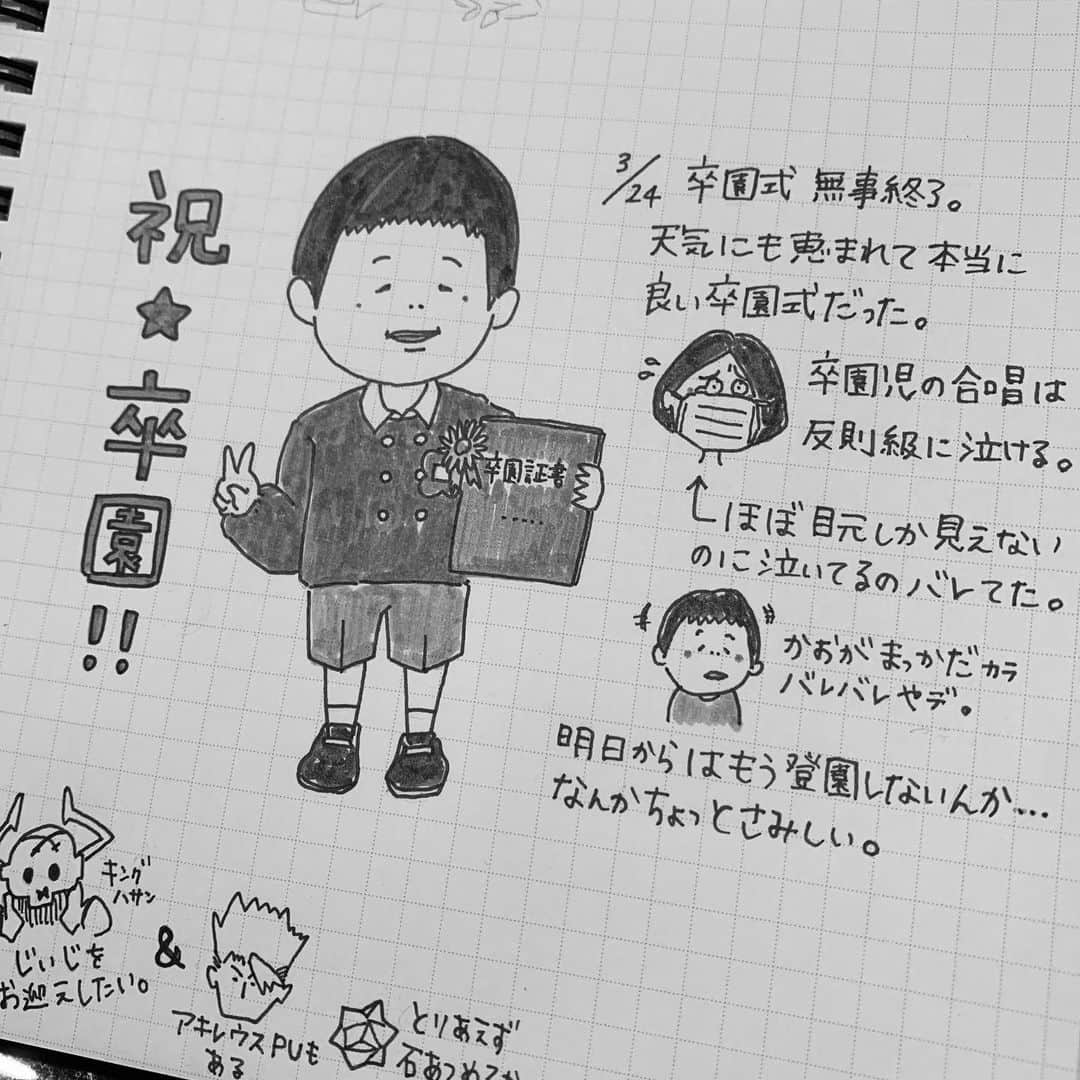 祝★卒園!!
3/24 卒園式 無事終了。
天気にも恵まれて本当に
良い卒園式だった。
卒園証書
卒園児の合唱は
反則級に泣ける。
ほぼ目元しか見えない
のに泣いてるのバレてた。
かおがまっかだカラ
バレバレやデ。
明日からはもう登園しないんか…
なんかちょっとさみしい。
キング
ハサン
じぃじを
お迎えしたい。
&
アキレウスPUも
ある
とりあえず
石あつめて